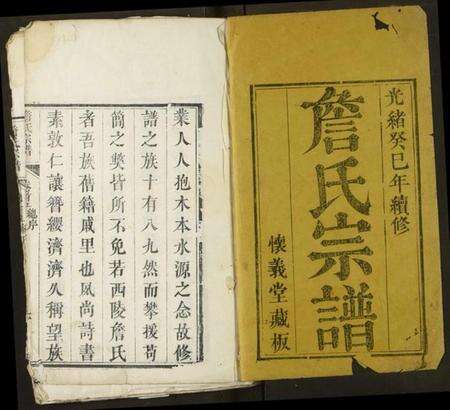 光緒癸巳年續修
詹氏宗譜
懷義堂藏板
業人人抱木本水源之念故修
譜之族十有八九然而攀援苟
簡之獘皆所不免若西陵詹氏
者吾族偕籍戚里也風尚詩書
素敦仁讓簪纓濟濟久稱望族
詹氏宗譜
總序